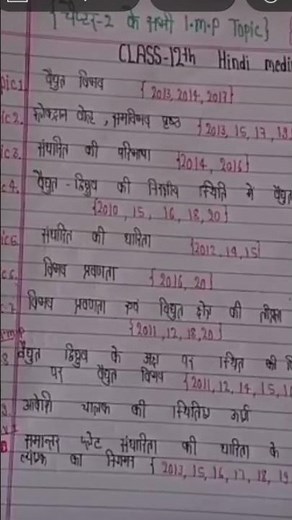 { चैप्टर-2 के सभी I.M.P Topic}
CLASS-12th Hindi medi
pic1 वैद्युत विभव
{ 2013, 2014, 2017}
ic2. इलेक्ट्रान वोल्ट, समविभव पृष्ठ
{ 2013, 15, 17, 18
ic3. संधारित्र की परिभाषा
{2014, 2016}
c4. वैद्युत - द्विध्रुव की निरक्षीय स्थिति में वैद्युत
{2010, 15, 16, 18, 20}
ic5 संधारित्र की धारिता
{2012, 14, 15}
c6. विभव प्रवणता { 2016, 20}
c.7 विभव प्रवणता एवं विद्युत क्षेत्र की तीव्रता
{2011, 12, 18, 20}
8 वैद्युत द्विध्रुव के अक्ष पर स्थित
पर वैद्युत विभव {2011, 12, 14, 15, 1
9. आवेशित चालक की स्थितिज ऊर्जा
समान्तर प्लेट संधारित्र की धारिता के
व्यंजक का निगमन { 2013, 15, 16, 17, 18, 19